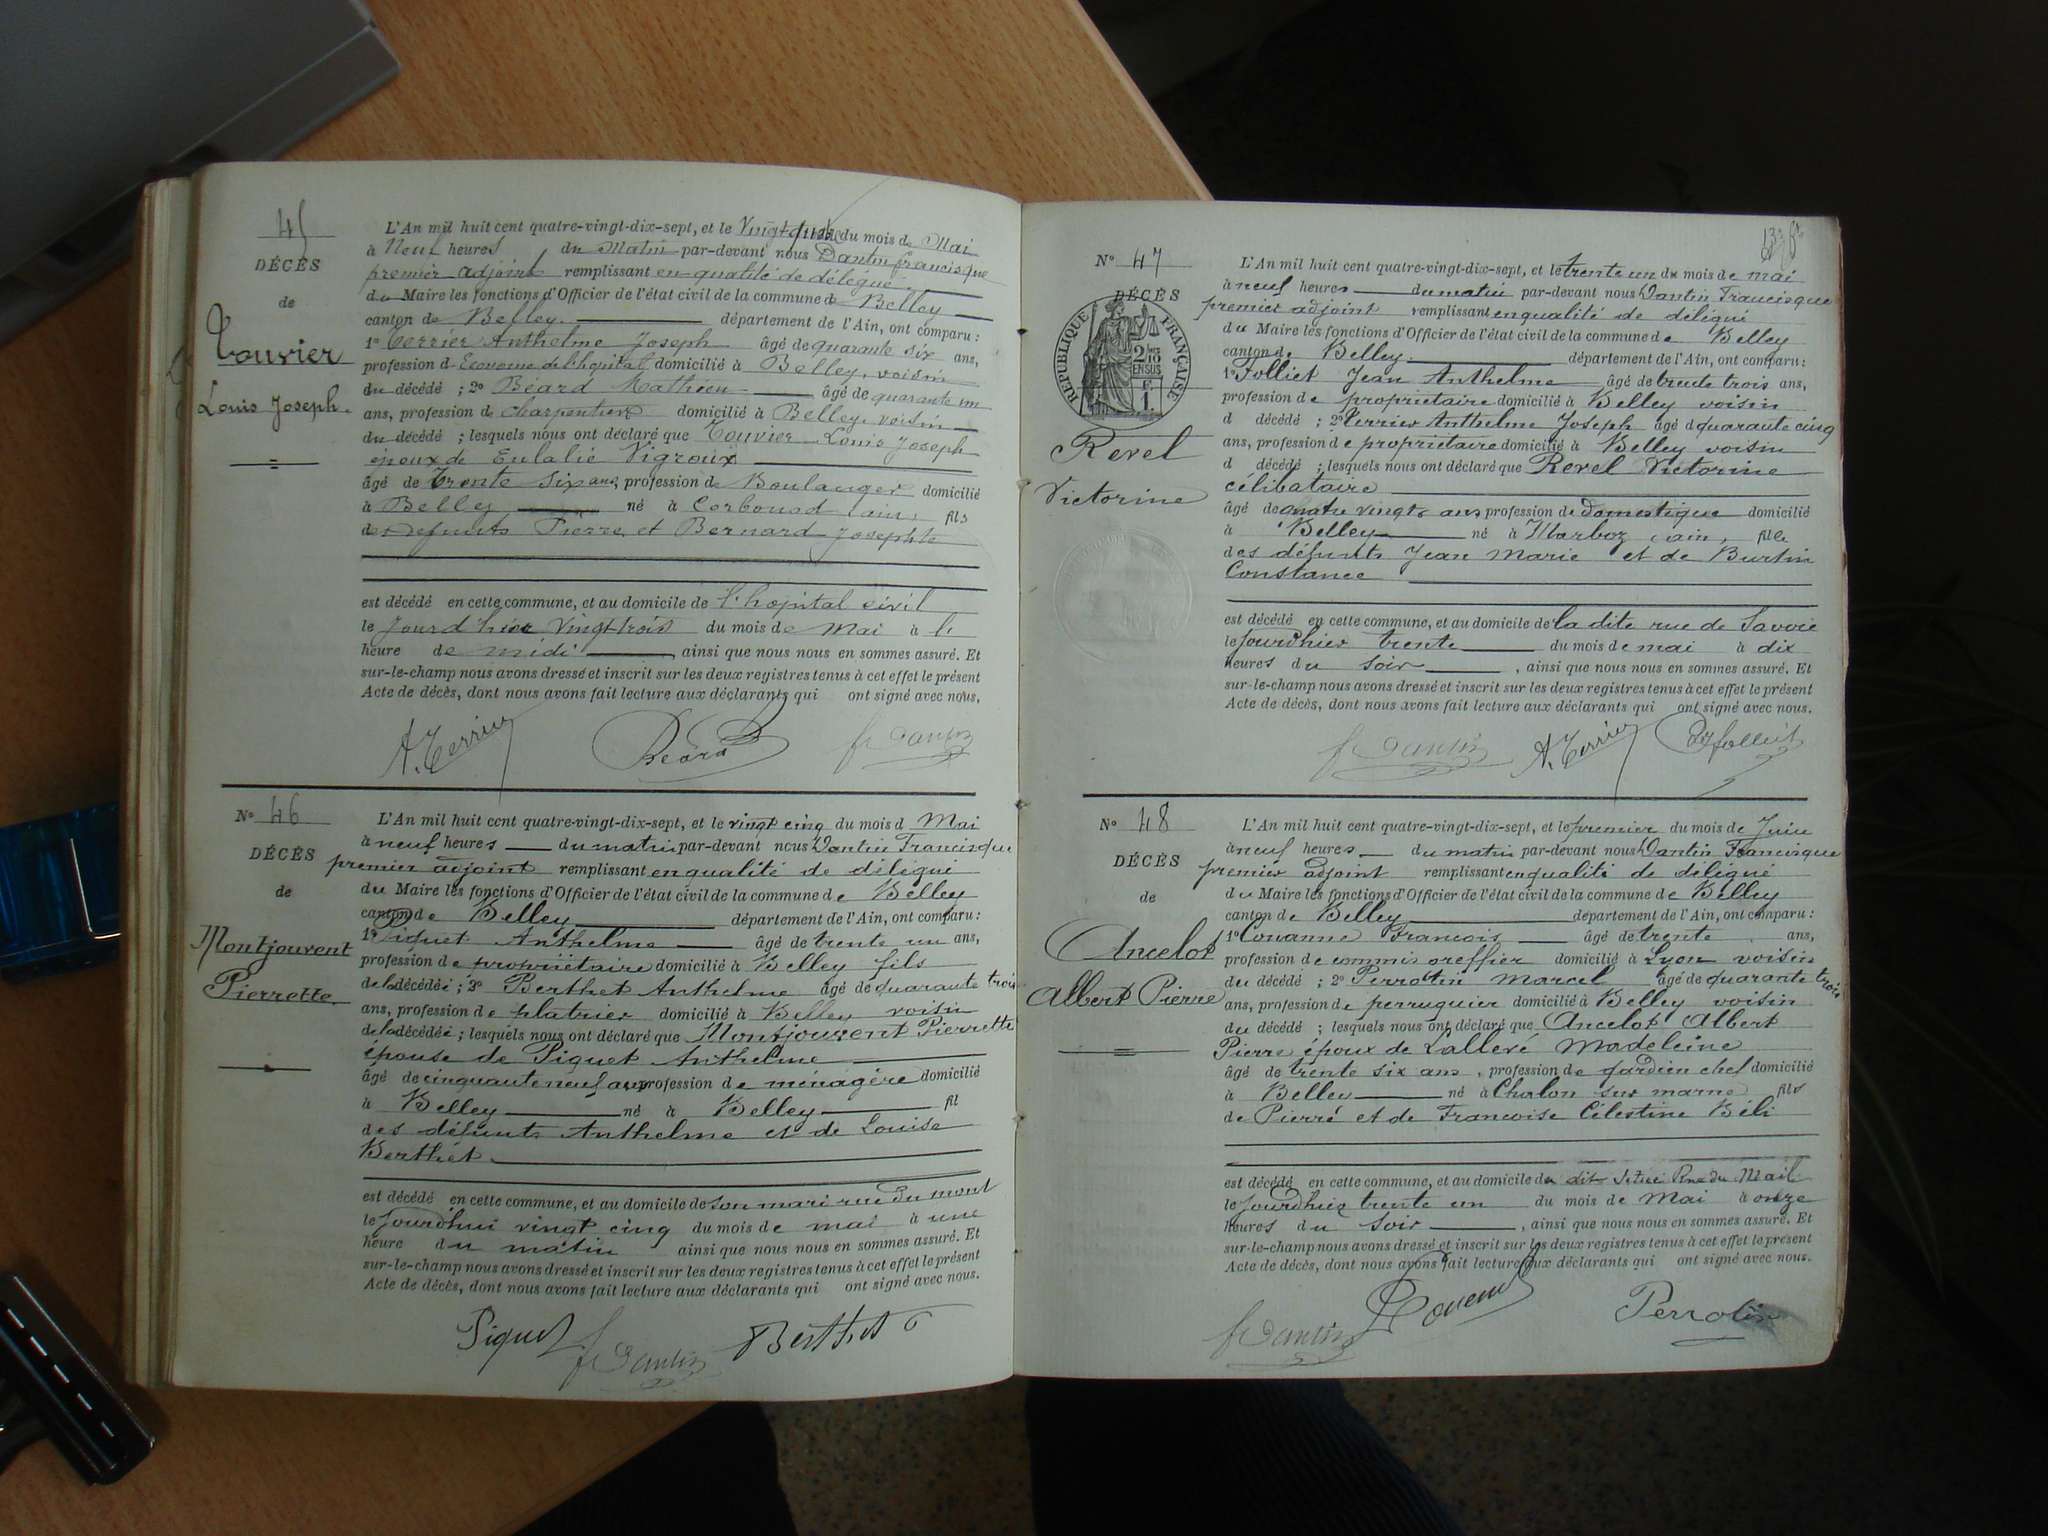 45
DÉCÈS
de
Touvier
Louis Joseph
L'An mil huit cent quatre-vingt-dix-sept, et le Vingt quatre du mois de Mai
à Neuf heures du Matin par-devant nous Dantin Francisque
premier adjoint remplissant en qualité de délégué
du Maire les fonctions d'Officier de l'état civil de la commune de Belley
canton de Belley département de l'Ain, ont comparu :
1º Terrier Anthelme Joseph âgé de quarante six ans,
profession d Econome de l'hopital domicilié à Belley, voisin
du décédé ; 2º Béard Mathieu âgé de quarante un
ans, profession de charpentier domicilié à Belley, voisin
du décédé ; lesquels nous ont déclaré que Touvier Louis Joseph
époux de Eulalie Vigroux
âgé de Trente Six ans, profession de Boulanger domicilié
à Belley né à Corbonod (ain) fils
de Defunts Pierre et Bernard Josephte
est décédé en cette commune, et au domicile de l'hopital civil
le Jourd'hier vingt trois du mois de Mai à l'
heure de midi, ainsi que nous nous en sommes assuré. Et
sur-le-champ nous avons dressé et inscrit sur les deux registres tenus à cet effet le présent
Acte de décès, dont nous avons fait lecture aux déclarants qui ont signé avec nous.
A. Terrier Béard fr Dantin
Nº 46
DÉCÈS
de
Montjouvent
Pierrette
L'An mil huit cent quatre-vingt-dix-sept, et le vingt cinq du mois d Mai
à neuf heures du matin par-devant nous Dantin Francisque
premier adjoint remplissant en qualité de délégué
du Maire les fonctions d'Officier de l'état civil de la commune de Belley
canton de Belley département de l'Ain, ont comparu :
1º Piquet Anthelme âgé de trente un ans,
profession de propriétaire domicilié à Belley fils
de la décédée ; 2º Berthet Anthelme âgé de quarante trois
ans, profession de platrier domicilié à Belley voisin
de la décédée ; lesquels nous ont déclaré que Montjouvent Pierrette
épouse de Piquet Anthelme
âgé de cinquante neuf ans profession de ménagère domicilié
à Belley né à Belley fil
des défunts Anthelme et de Louise
Berthet
est décédé en cette commune, et au domicile de son mari rue du mont
le Jourd'hui vingt cinq du mois de mai à une
heure du matin ainsi que nous nous en sommes assuré. Et
sur-le-champ nous avons dressé et inscrit sur les deux registres tenus à cet effet le présent
Acte de décès, dont nous avons fait lecture aux déclarants qui ont signé avec nous.
Piquet fr Dantin Berthet
Nº 47
DÉCÈS
RÉPUBLIQUE FRANÇAISE
Revel
Victorine
L'An mil huit cent quatre-vingt-dix-sept, et le trente un du mois de mai
à neuf heures du matin par-devant nous Dantin Francisque
premier adjoint remplissant en qualité de délégué
du Maire les fonctions d'Officier de l'état civil de la commune de Belley
canton de Belley département de l'Ain, ont comparu :
1º Folliet Jean Anthelme âgé de trente trois ans,
profession de propriétaire domicilié à Belley voisin
d décédé ; 2º Terrier Anthelme Joseph âgé d quarante cinq
ans, profession de propriétaire domicilié à Belley voisin
d décédé ; lesquels nous ont déclaré que Revel Victorine
célibataire
âgé de quatre vingts ans profession de domestique domicilié
à Belley né à Marboz (ain) fille
des défunts Jean Marie et de Burtin
Constance
est décédé en cette commune, et au domicile de la dite rue de Savoie
le Jourd'hier trente du mois de mai à dix
heures du soir, ainsi que nous nous en sommes assuré. Et
sur-le-champ nous avons dressé et inscrit sur les deux registres tenus à cet effet le présent
Acte de décès, dont nous avons fait lecture aux déclarants qui ont signé avec nous.
fr Dantin A. Terrier folliet
Nº 48
DÉCÈS
de
Ancelot
Albert Pierre
L'An mil huit cent quatre-vingt-dix-sept, et le premier du mois de Juin
à neuf heures du matin par-devant nous Dantin Francisque
premier adjoint remplissant en qualité de délégué
du Maire les fonctions d'Officier de l'état civil de la commune de Belley
canton de Belley département de l'Ain, ont comparu :
1º Couanne François âgé de trente ans,
profession de commis greffier domicilié à Lyon voisin
du décédé ; 2º Perrotin Marcel âgé de quarante trois
ans, profession de perruquier domicilié à Belley voisin
du décédé ; lesquels nous ont déclaré que Ancelot Albert
Pierre époux de Lalleré Madeleine
âgé de trente six ans, profession de gardien chef domicilié
à Belley né à Chalon sur marne fils
de Pierre et de Françoise Célestine Béli
est décédé en cette commune, et au domicile du dit Rue du Mail
le Jourd'hier trente un du mois de Mai à onze
heures du soir, ainsi que nous nous en sommes assuré. Et
sur-le-champ nous avons dressé et inscrit sur les deux registres tenus à cet effet le présent
Acte de décès, dont nous avons fait lecture aux déclarants qui ont signé avec nous.
fr Dantin Perrotin